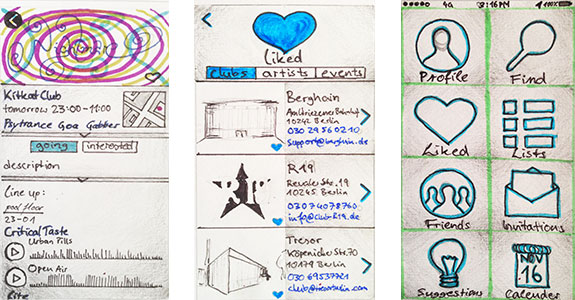 KitKat Club
tomorrow 23:00 - 11:00
Psytrance Goa Gabber
going
interested
description
Line up:
pool floor
23-01
Critical Taste
Urban Pills
Open Air
Liked
clubs
artists
events
Berghain
10243 Berlin
030 29 56 02 10
support@berghain.de
R19
Revaler Str. 19
10245 Berlin
030 74078760
info@club-R19.de
Tresor
Köpenicker Str. 70
10179 Berlin
030 69537721
4a
:16 PM
100%
Profile
Find
Liked
Lists
Friends
Invitations
NOV
16
Suggestions
Calender